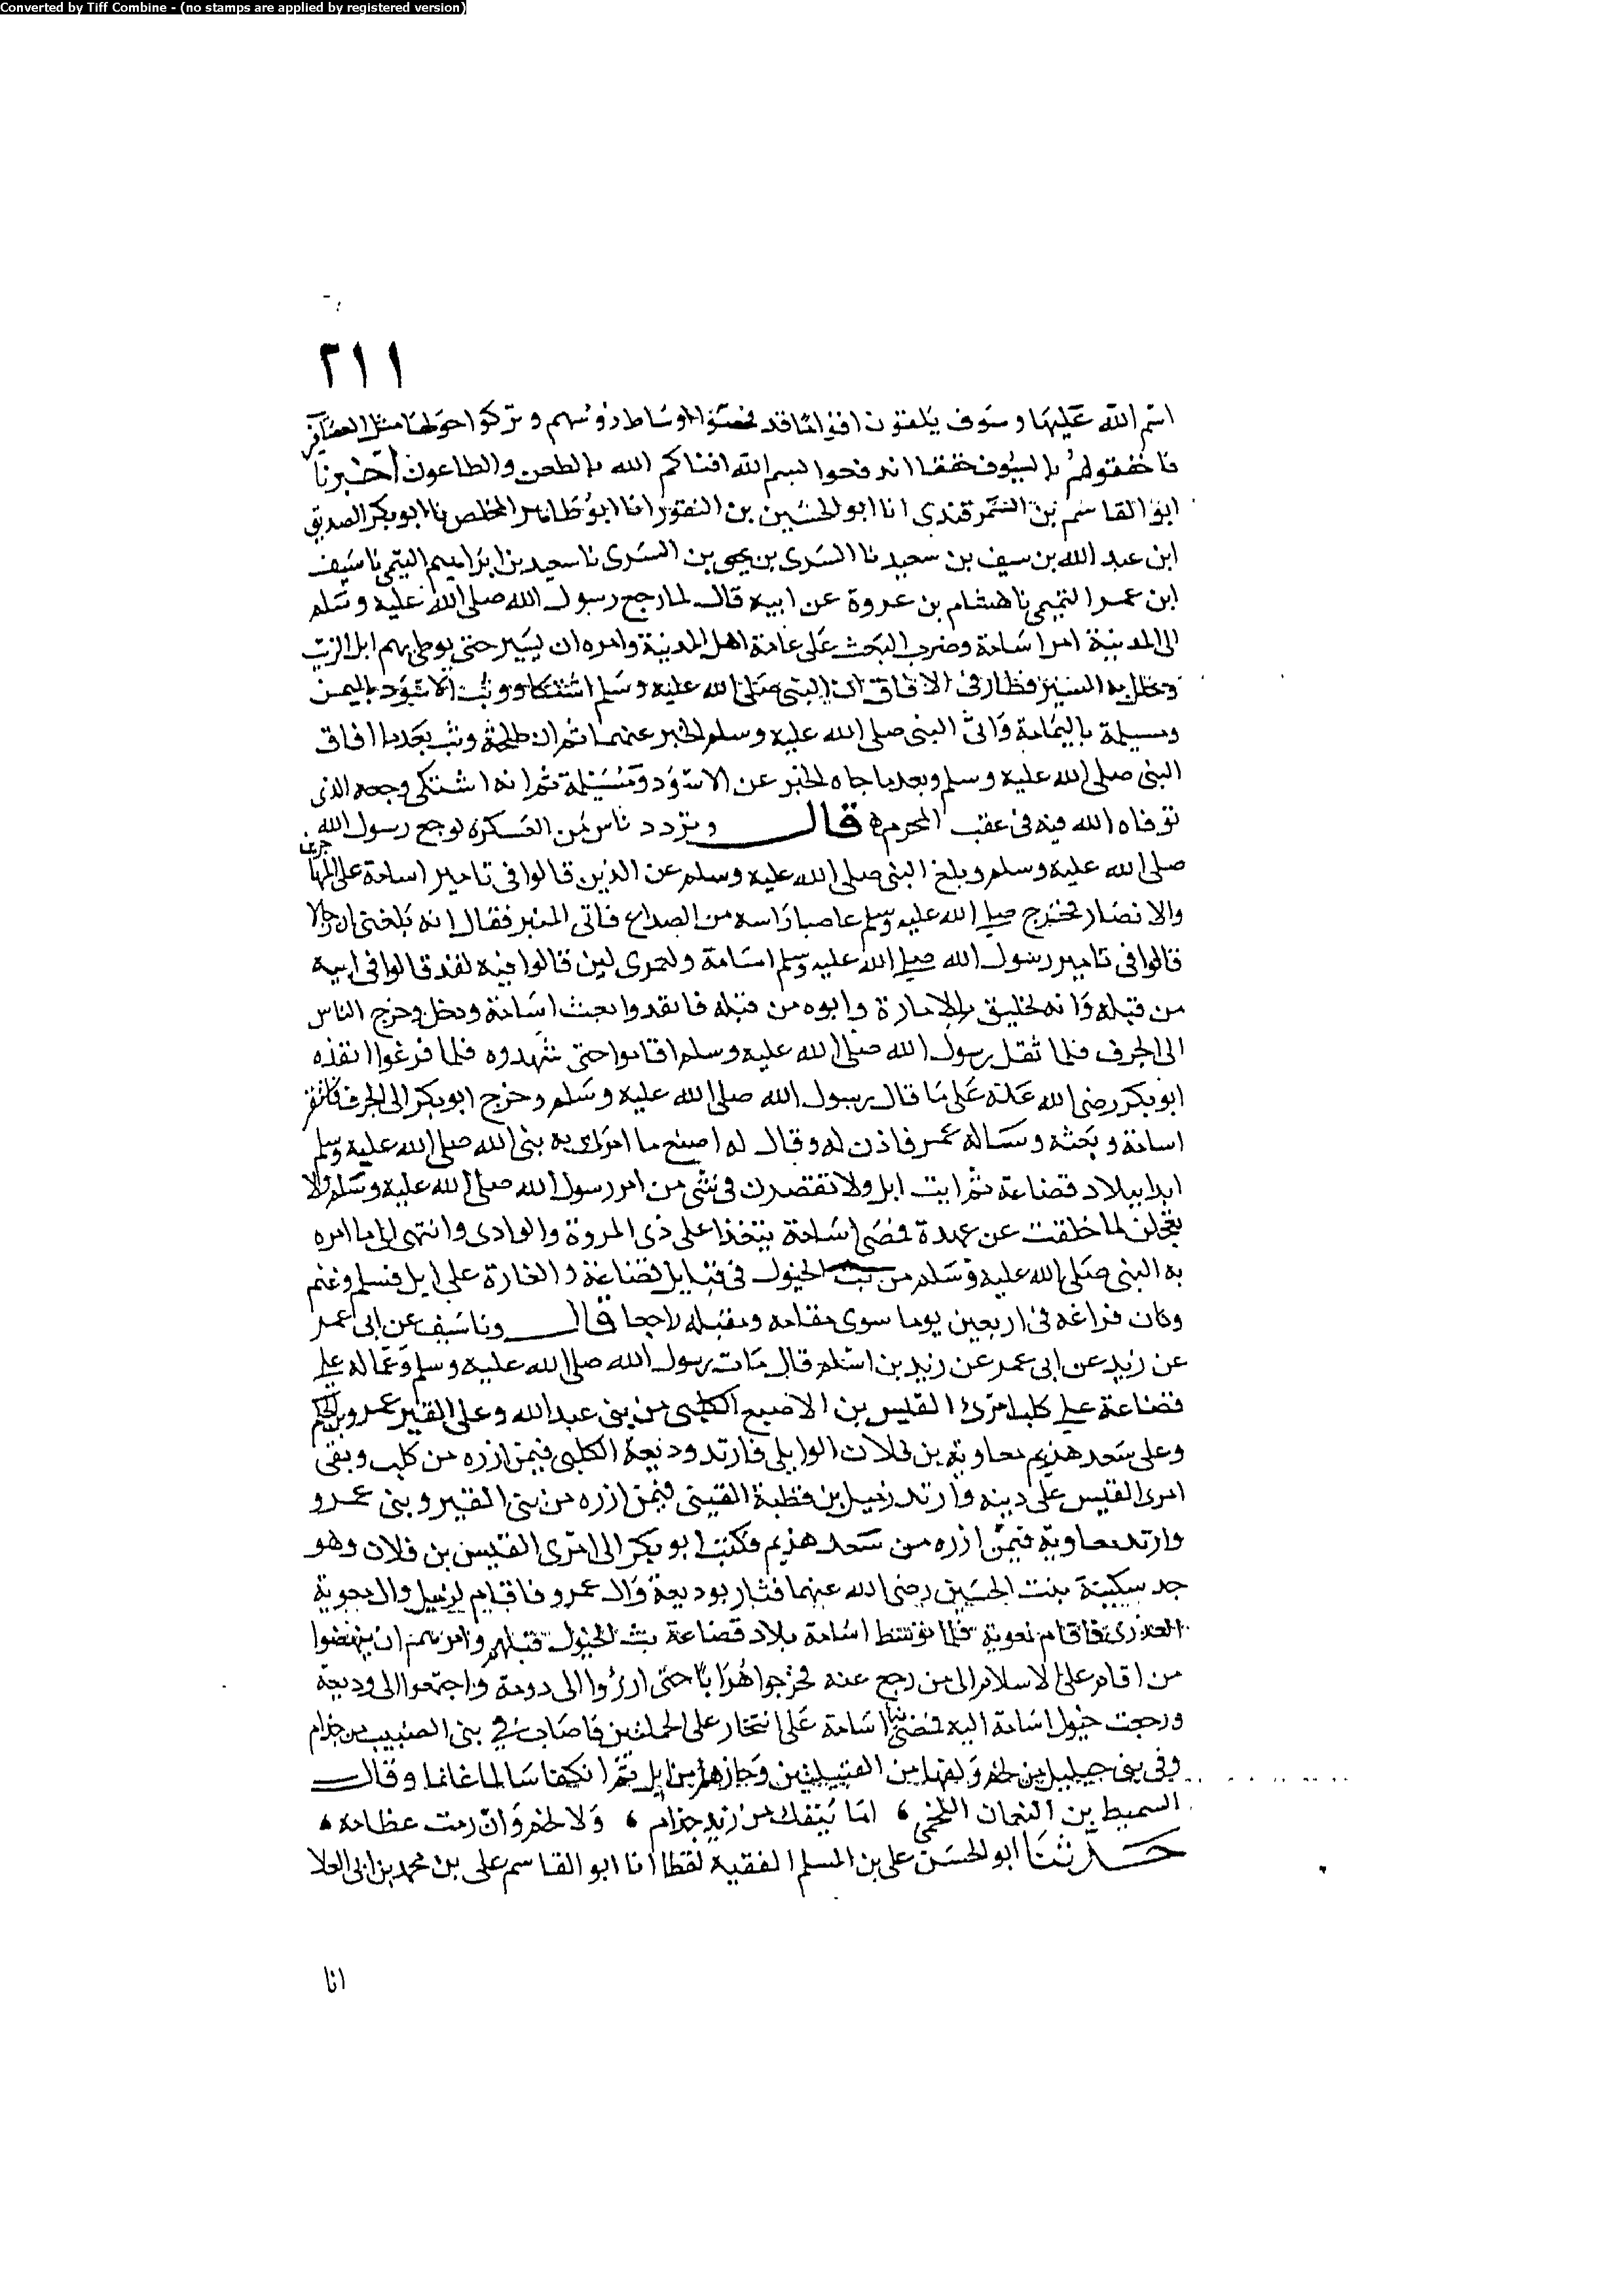 Converted by Tiff Combine - (no stamps are applied by registered version)
٢١١
اسم الله عليها وسوف يلقون اقواما قد فحصوا اوساط رؤسهم وتركوا حولها مثل العصائب
فاخفقوهم بالسيوف خفقا اندفحوا لبسم الله افناكم الله بالطعن والطاعون اخبرنا
ابو القاسم بن السمرقندى انا ابو الحسين بن النقور انا ابو طاهر المخلص نا ابو بكر
ابن عبد الله بن سيف بن سعيد نا السرى بن يحيى بن السرى نا سعيد بن ابراهيم التيمى نا سيف
ابن عمر التميمى نا هشام بن عروة عن ابيه قال لما رجع رسول الله صلى الله عليه وسلم
الى المدينة امر اسامة وضرب البعث على عامة اهل المدينة وامره ان يسير حتى يوطئهم ابل الزيت
فطار فى الافاق ان النبى صلى الله عليه وسلم اشتكا ووثب الاسود باليمن
ومسيلمة باليمامة واتى النبى صلى الله عليه وسلم الخبر عنهما ثم ان طلحة وثب بعدما افاق
النبى صلى الله عليه وسلم وبعدما جاه الخبر عن الاسود ومسيلمة ثم انه اشتكى وجعه الذى
توفاه الله فيه فى عقب المحرم قال وتردد ناس من العسكرة لوجع رسول الله
صلى الله عليه وسلم وبلغ النبى صلى الله عليه وسلم عن الذين قالوا فى تامير اسامة على المها جرين
والانصار فخرج صلى الله عليه وسلم عاصبا راسه من الصداع فاتى المنبر فقال انه بلغنى ان رجالا
قالوا فى تامير رسول الله صلى الله عليه وسلم اسامة ولعمرى لين قالوا فيه لقد قالوا فى ابيه
من قبله وانه لخليق بالامارة وابوه من قبله فانفذوا بعث اسامة ودخل وخرج الناس
الى الجرف فلما ثقل رسول الله صلى الله عليه وسلم اقاموا حتى شهدوه فلما فرغوا انفذه
ابو بكر رضى الله عنه على ما قال رسول الله صلى الله عليه وسلم وخرج ابو بكر الى الجرف
اسامة وبعثه وساله عمر فاذن له وقال له اصنع ما امرك به نبى الله صلى الله عليه وسلم
ابدا ببلاد قضاعة ثم ايت ابل ولا تقصرن فى شى من امر رسول الله صلى الله عليه وسلم ولا
تعجلن لما خلفت عن عهده فمضى اسامة على ذى المروة والوادى وانتهى الى ما امره
به النبى صلى الله عليه وسلم من بث الخيول فى قبايل قضاعة والغارة على ابل فسلم وغنم
وكان فراغه فى اربعين يوما سوى مقامه ومقبله راجعا قال ونا سيف عن ابى عمر
عن زيد عن ابى عمر عن زيد بن اسلم قال مات رسول الله صلى الله عليه وسلم وعماله على
قضاعة على كلب امرئ القيس بن الاصبع الكلبى من بنى عبد الله وعلى القين عمرو بن الحكم
وعلى سعد هذيم معاوية بن فلان الوايلى فارتد وديعة الكلبى فيمن ازره من كلب وبقى
امرى القيس على دينه وارتد زميل بن قطبة القينى فيمن ازره من بنى القين وبنى عمرو
وارتد معاوية فيمن ازره من سعد هذيم فكتب ابو بكر الى امرى القيس بن فلان وهو
جد سكينة بنت الحسين رضى الله عنهما فثار بوديعة وال عمرو فاقام لزميل وال معوية
العذرى فاقام لمعوية فلما توسط اسامة بلاد قضاعة بث الخيول قبلهم وامرهم ان ينهضوا
من اقام على الاسلام الى من رجع عنه فخرجوا هرابا حتى ارزوا الى دومة واجتمعوا الى وديعة
ورجعت خيول اسامة اليه فمضى اسامة على الحمقتين فاصاب فى بنى الضبيب من جذام
وفى بنى من لخم ولفها من القبيلتين وحازهم من ابل ثم انكفا سالما غانما وقال
السميط بن النعمان اللخمى ، اما ينفك من زيد جذام ، ولا لخم وان رمت عظامه ،
حدثنا ابو الحسن على بن المسلم الفقيه لفظا انا ابو القاسم على بن محمد بن ابى العلا
انا